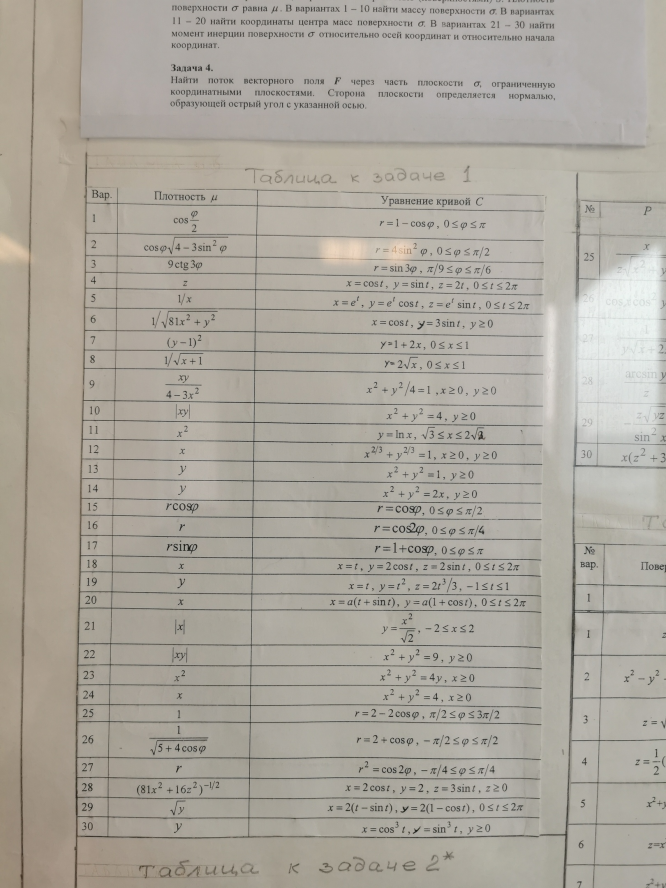 поверхности σ равна μ. В вариантах 1 – 10 найти массу поверхности σ. В вариантах
11 – 20 найти координаты центра масс поверхности σ. В вариантах 21 – 30 найти
момент инерции поверхности σ относительно осей координат и относительно начала
координат.
Задача 4.
Найти поток векторного поля F через часть плоскости σ, ограниченную
координатными плоскостями. Сторона плоскости определяется нормалью,
образующей острый угол с указанной осью.
Таблица к задаче 1
Вар. Плотность μ Уравнение кривой C
1 cos φ/2 r = 1 – cosφ, 0 ≤ φ ≤ π
2 cosφ√(4 – 3sin² φ) r = 4sin² φ, 0 ≤ φ ≤ π/2
3 9ctg3φ r = sin3φ, π/9 ≤ φ ≤ π/6
4 z x = cost, y = sint, z = 2t, 0 ≤ t ≤ 2π
5 1/x x = eᵗ, y = eᵗ cost, z = eᵗ sint, 0 ≤ t ≤ 2π
6 1/√(81x² + y²) x = cost, y = 3sint, y ≥ 0
7 (y – 1)² y = 1 + 2x, 0 ≤ x ≤ 1
8 1/√(x + 1) y = 2√x, 0 ≤ x ≤ 1
9 xy/(4 – 3x²) x² + y²/4 = 1, x ≥ 0, y ≥ 0
10 |xy| x² + y² = 4, y ≥ 0
11 x² y = ln x, √3 ≤ x ≤ 2√2
12 x x^(2/3) + y^(2/3) = 1, x ≥ 0, y ≥ 0
13 y x² + y² = 1, y ≥ 0
14 y x² + y² = 2x, y ≥ 0
15 rcosφ r = cosφ, 0 ≤ φ ≤ π/2
16 r r = cos2φ, 0 ≤ φ ≤ π/4
17 rsinφ r = 1+cosφ, 0 ≤ φ ≤ π
18 x x = t, y = 2cost, z = 2sint, 0 ≤ t ≤ 2π
19 y x = t, y = t², z = 2t³/3, –1 ≤ t ≤ 1
20 x x = a(t + sint), y = a(1 + cost), 0 ≤ t ≤ 2π
21 |x| y = x²/√2, –2 ≤ x ≤ 2
22 |xy| x² + y² = 9, y ≥ 0
23 x² x² + y² = 4y, x ≥ 0
24 x x² + y² = 4, x ≥ 0
25 1 r = 2 – 2cosφ, π/2 ≤ φ ≤ 3π/2
26 1/√(5 + 4cosφ) r = 2 + cosφ, –π/2 ≤ φ ≤ π/2
27 r r² = cos2φ, –π/4 ≤ φ ≤ π/4
28 (81x² + 16z²)^(–1/2) x = 2cost, y = 2, z = 3sint, z ≥ 0
29 √y x = 2(t – sint), y = 2(1 – cost), 0 ≤ t ≤ 2π
30 y x = cos³ t, y = sin³ t, y ≥ 0
Таблица к задаче 2*
№ P
25
28
29
sin² x
30 x(z² + 3
№
вар. Повер
1
1
2 x² – y²
3 z = √
4 z = 1/2(
5 x²+y
6 z=x
7